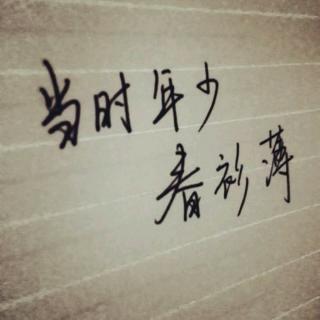 当时年少
春衫薄